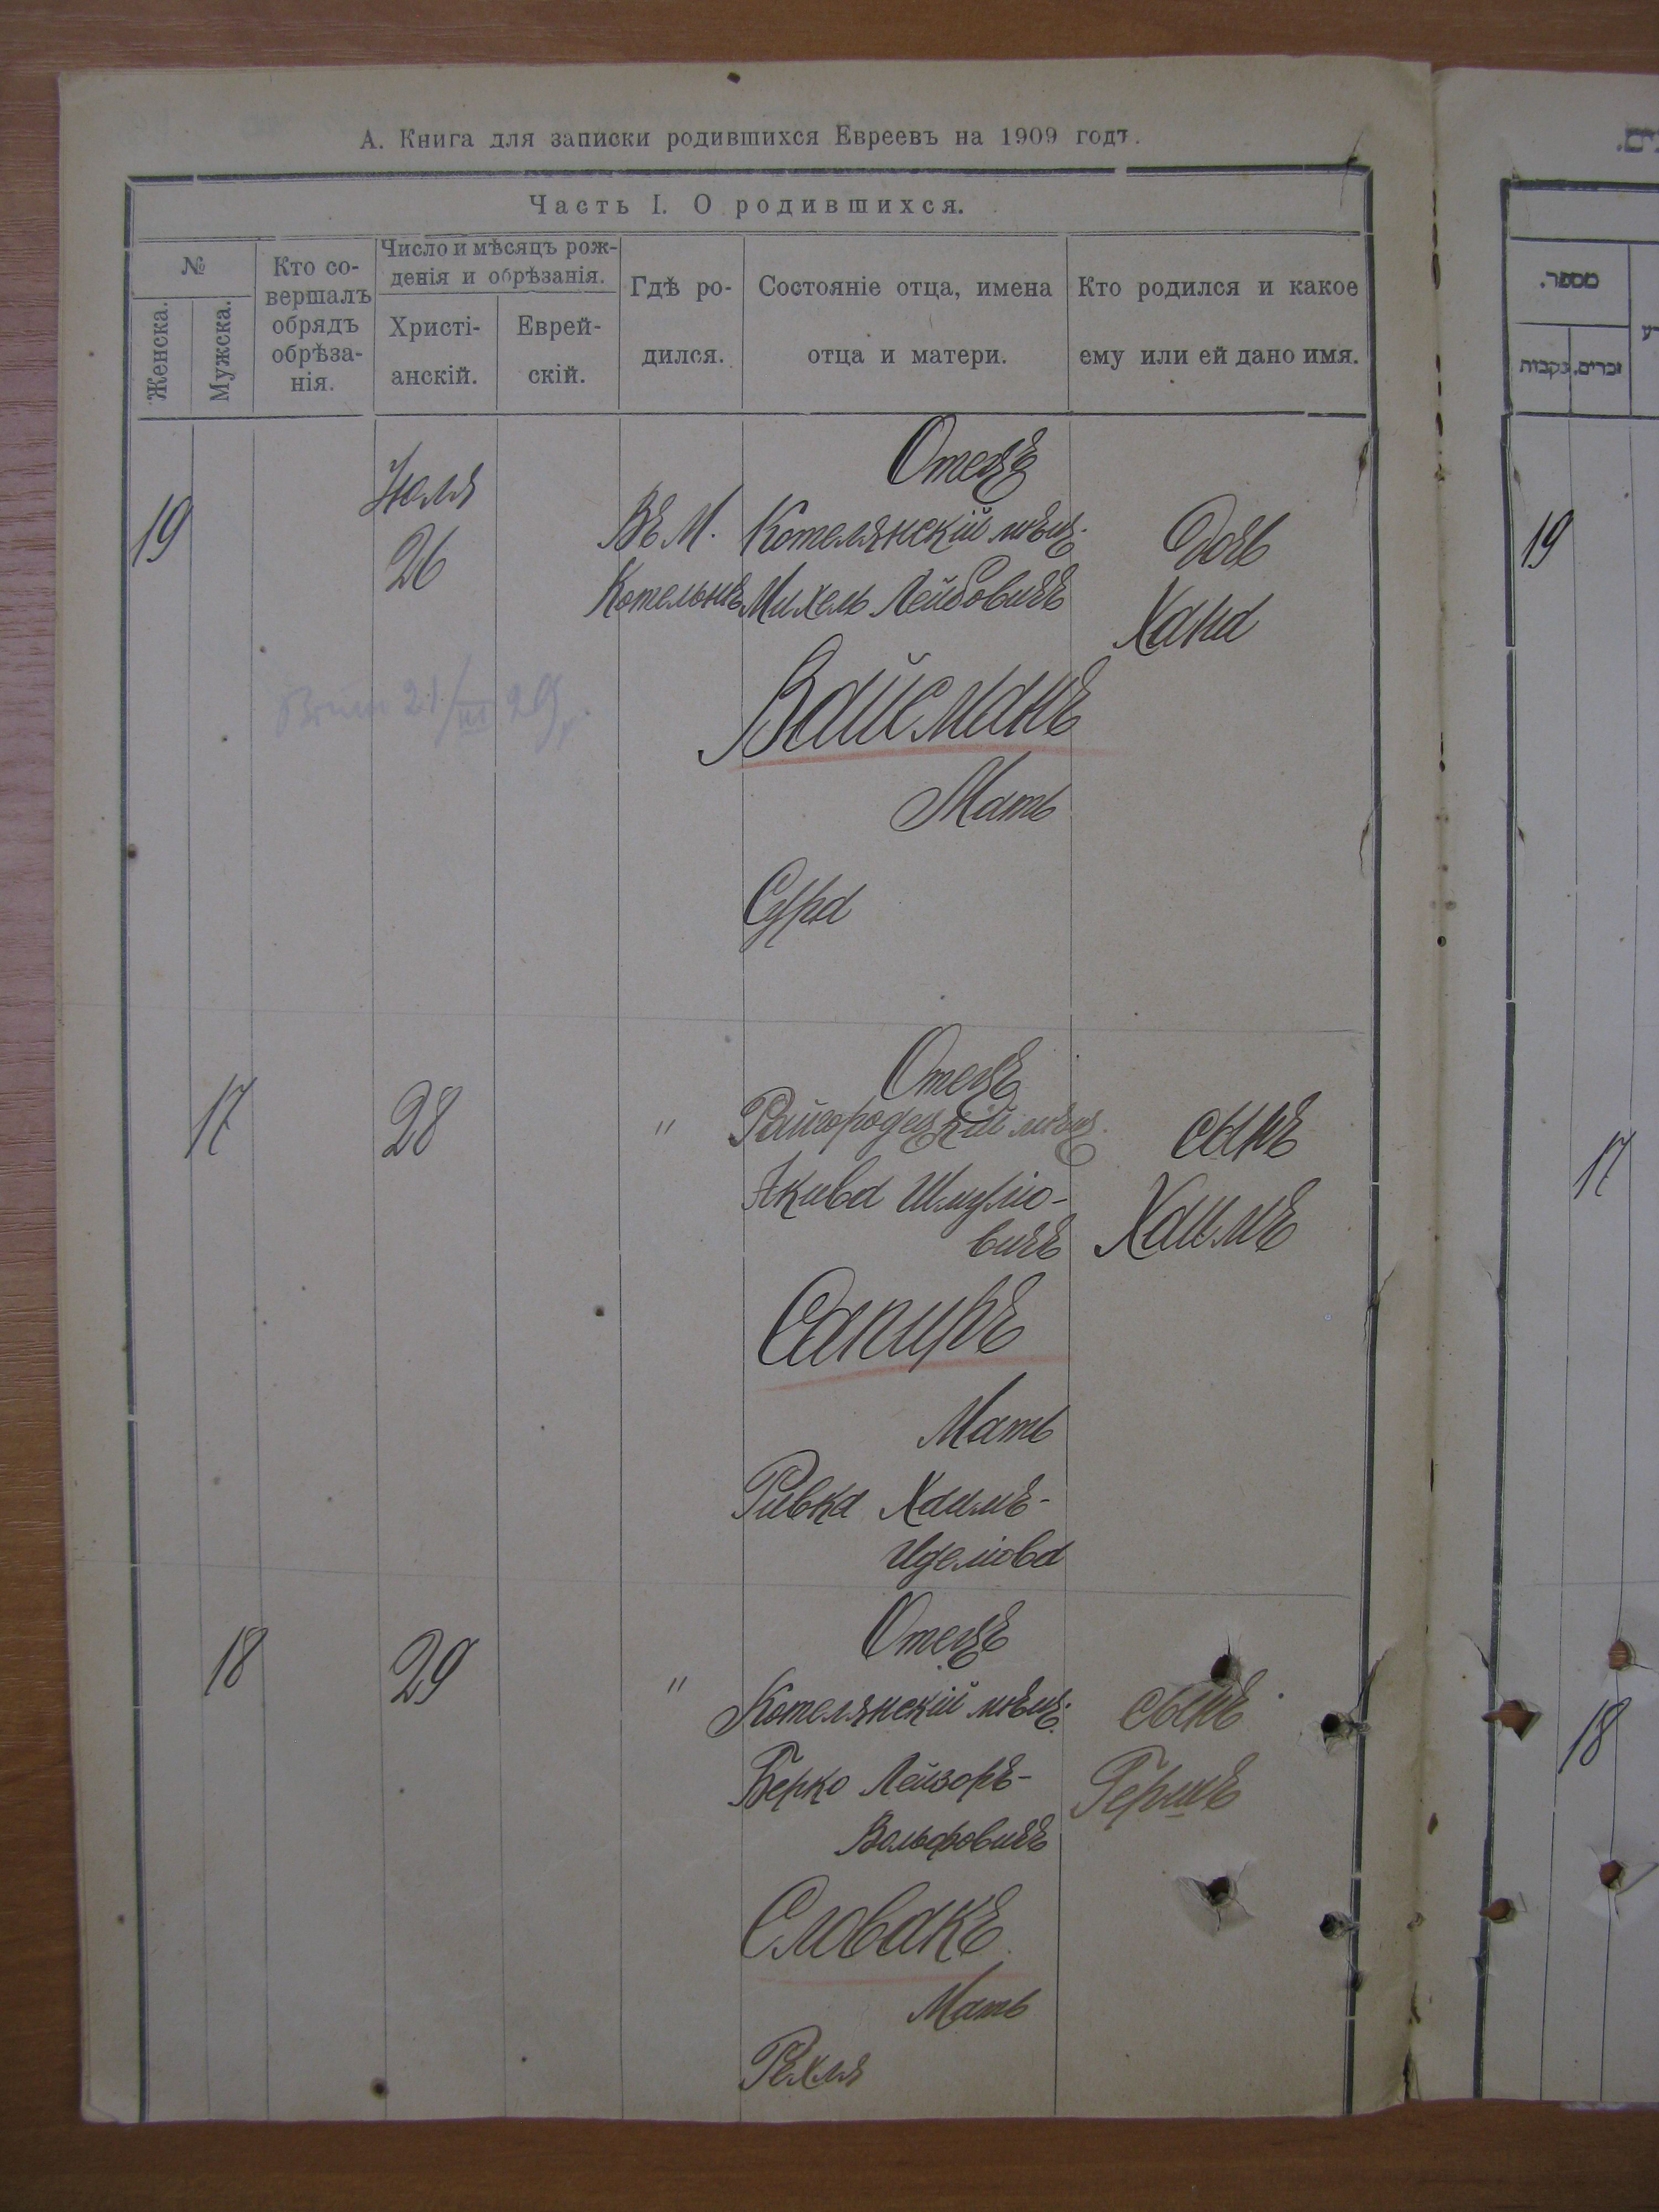 А. Книга для записки родившихся Евреевъ на 1909 годъ.
Часть I. О родившихся.
№
Женска.
Мужска.
Кто со-
вершалъ
обрядъ
обрѣза-
нія.
Число и мѣсяцъ рож-
денія и обрѣзанія.
Христі-
анскій.
Еврей-
скій.
Гдѣ ро-
дился.
Состояніе отца, имена
отца и матери.
Кто родился и какое
ему или ей дано имя.
מספר.
זכרים.
נקבות
19
Іюля
26
Въ М.
Котельнѣ
Отецъ
Котелянскій мѣщ.
Михель Лейбовичъ
Вайсманъ
Мать
Сура
Дочь
Хана
21/III 29г.
19
17
28
"
Отецъ
Райгородецкій мѣщ.
Акива Шмуліо-
вичъ
Сапиръ
Мать
Ривка Хаимъ-
Иделіова
сынъ
Хаимъ
17
18
29
"
Отецъ
Котелянскій мѣщ.
Берко Лейзоръ-
Вольфовичъ
Словакъ
Мать
Рехля
сынъ
Гершъ
18